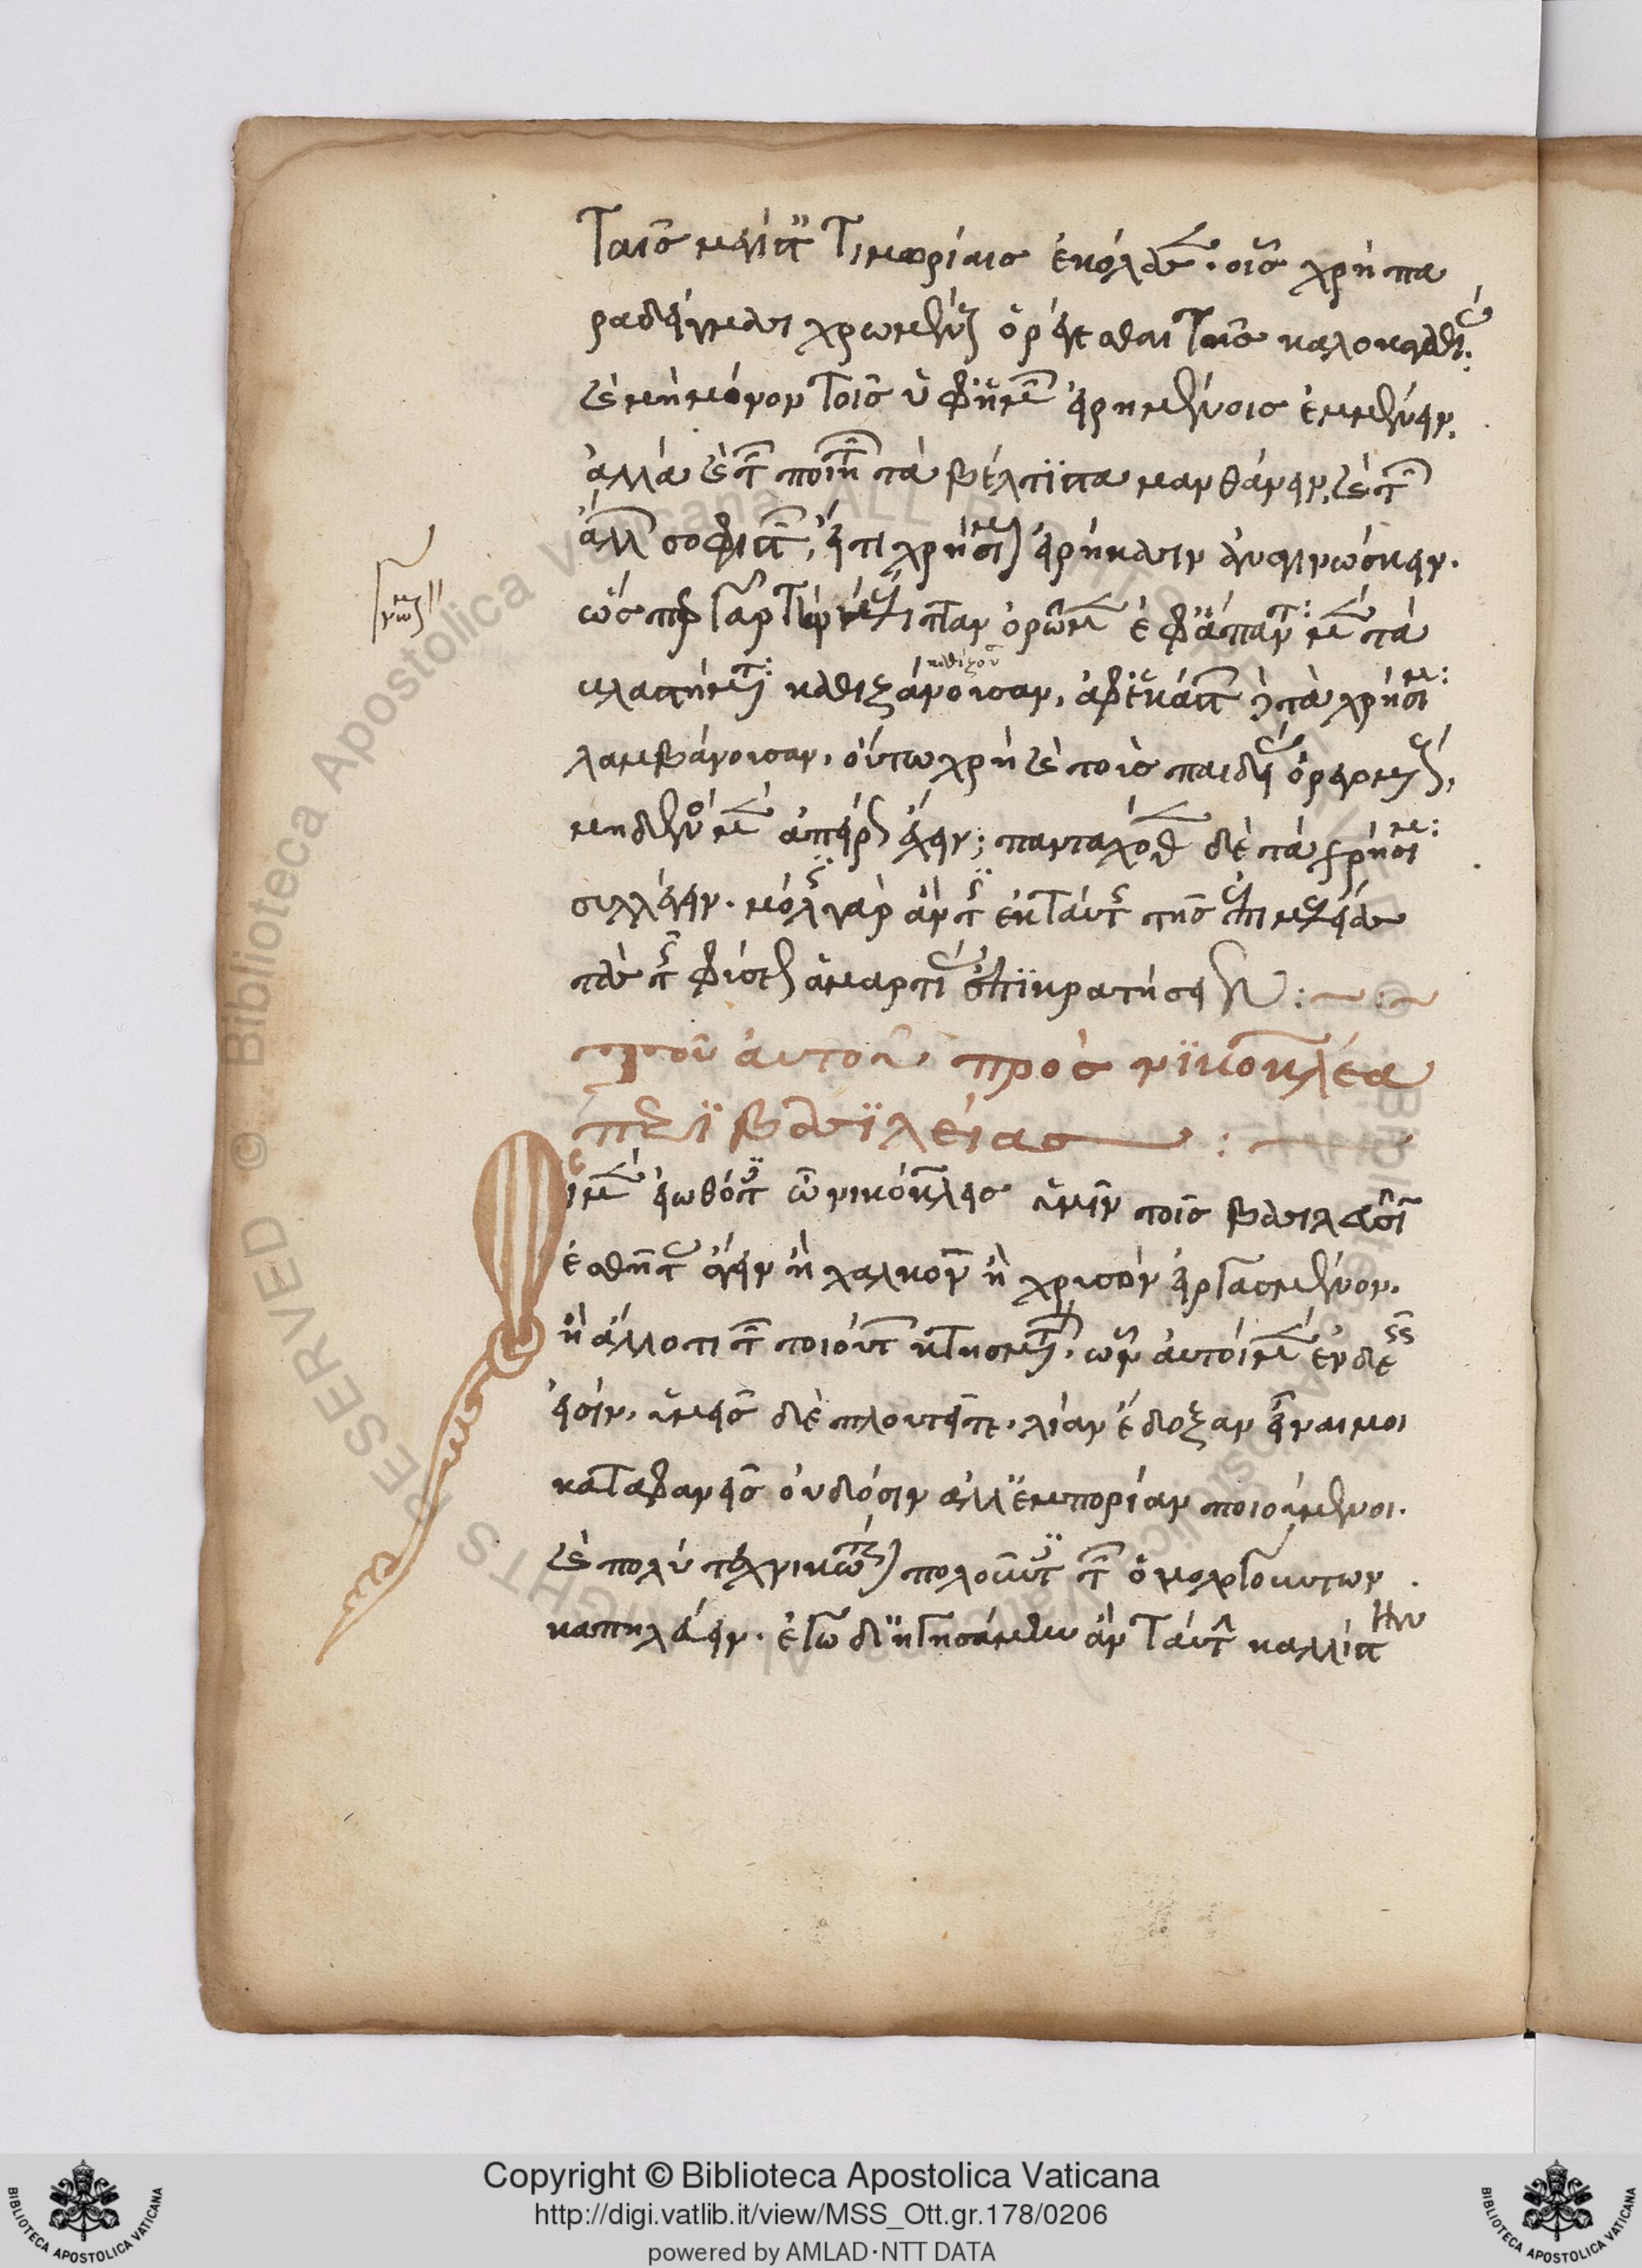 ταῖς μεγίσταις τιμωρίαις ἐκόλασεν. οἷς χρὴ πα
ραδείγμασι χρωμένους ὀρέγεσθαι τῆς καλοκαγαθίας.
καὶ μὴ μόνον τοῖς ὑφ' ἡμῶν εἰρημένοις ἐμμένειν.
ἀλλὰ καὶ τῶν ποιητῶν τὰ βέλτιστα μανθάνειν, καὶ τῶν
ἄλλων σοφιστῶν, εἴ τι χρήσιμον εἰρήκασιν ἀναγινώσκειν.
γνώμη
ὥσπερ γὰρ τὴν μέλιτταν ὁρῶμεν ἐφ' ἅπαντα μὲν τὰ
βλαστήματα καθιζάνουσαν, ἀφ' ἑκάστου δὲ τὰ χρήσιμα
λαμβάνουσαν, οὕτω χρὴ καὶ τοὺς παιδείας ὀρεγομένους,
μηδενὸς μὲν ἀπείρως ἔχειν; πανταχόθεν δὲ τὰ χρήσιμα
συλλέγειν. μόλις γὰρ ἄν τις ἐκ ταύτης τῆς ἐπιμελείας
τὰς τῆς φύσεως ἁμαρτίας ἐπικρατήσειεν :~:~
τοῦ αὐτοῦ, πρὸς νικοκλέα
περὶ βασιλείας :
Οἱ μὲν εἰωθότες ὦ νικόκλεις ὑμῖν τοῖς βασιλεῦσιν
ἐσθῆτας ἄγειν ἢ χαλκὸν ἢ χρυσὸν εἰργασμένον.
ἢ ἄλλο τι τῶν τοιούτων κτημάτων, ὧν αὐτοὶ μὲν ἐνδεεῖς
εἰσίν, ὑμεῖς δὲ πλουτεῖτε, λίαν ἔδοξαν εἶναι μοι
καταφανεῖς οὐ δόσιν ἀλλ' ἐμπορίαν ποιούμενοι.
καὶ πολὺ τεχνικώτερον πωλοῦντες τῶν ὁμολογούντων
καπηλεύειν. ἐγὼ δ' ἡγησάμην ἂν ταύτην καλλίστην
Copyright © Biblioteca Apostolica Vaticana
http://digi.vatlib.it/view/MSS_Ott.gr.178/0206
powered by AMLAD·NTT DATA
BIBLIOTECA APOSTOLICA VATICANA
BIBLIOTECA APOSTOLICA VATICANA